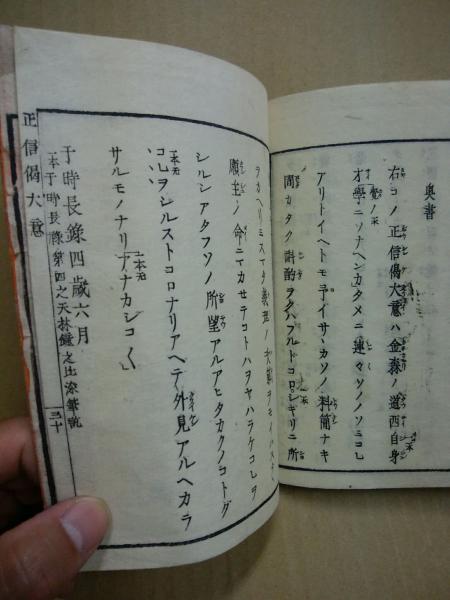 奥書
右コノ正信偈大意ハ金森ノ道西自身
才學ニソナヘンカタメニ連々ソノノソミコレ
アリトイヘトモ予イサヽカソノ料簡ナキ
間カタク斟酌ヲクハフルトコロシキリニ所
ヲカヘリミスマタ義理ノ次第ヲモイハスタヽ
願主ノ命ニマカセテコトハヲヤハラケコレヲ
シルシアタフソノ所望アルアヒタカクノコトク
コレヲシルストコロナリアヘテ外見アルヘカラ
サルモノナリアナカシコ〱
于時長錄四歳六月
一本于時長祿第四之天林鐘之比染筆訖
正信偈大意
三十